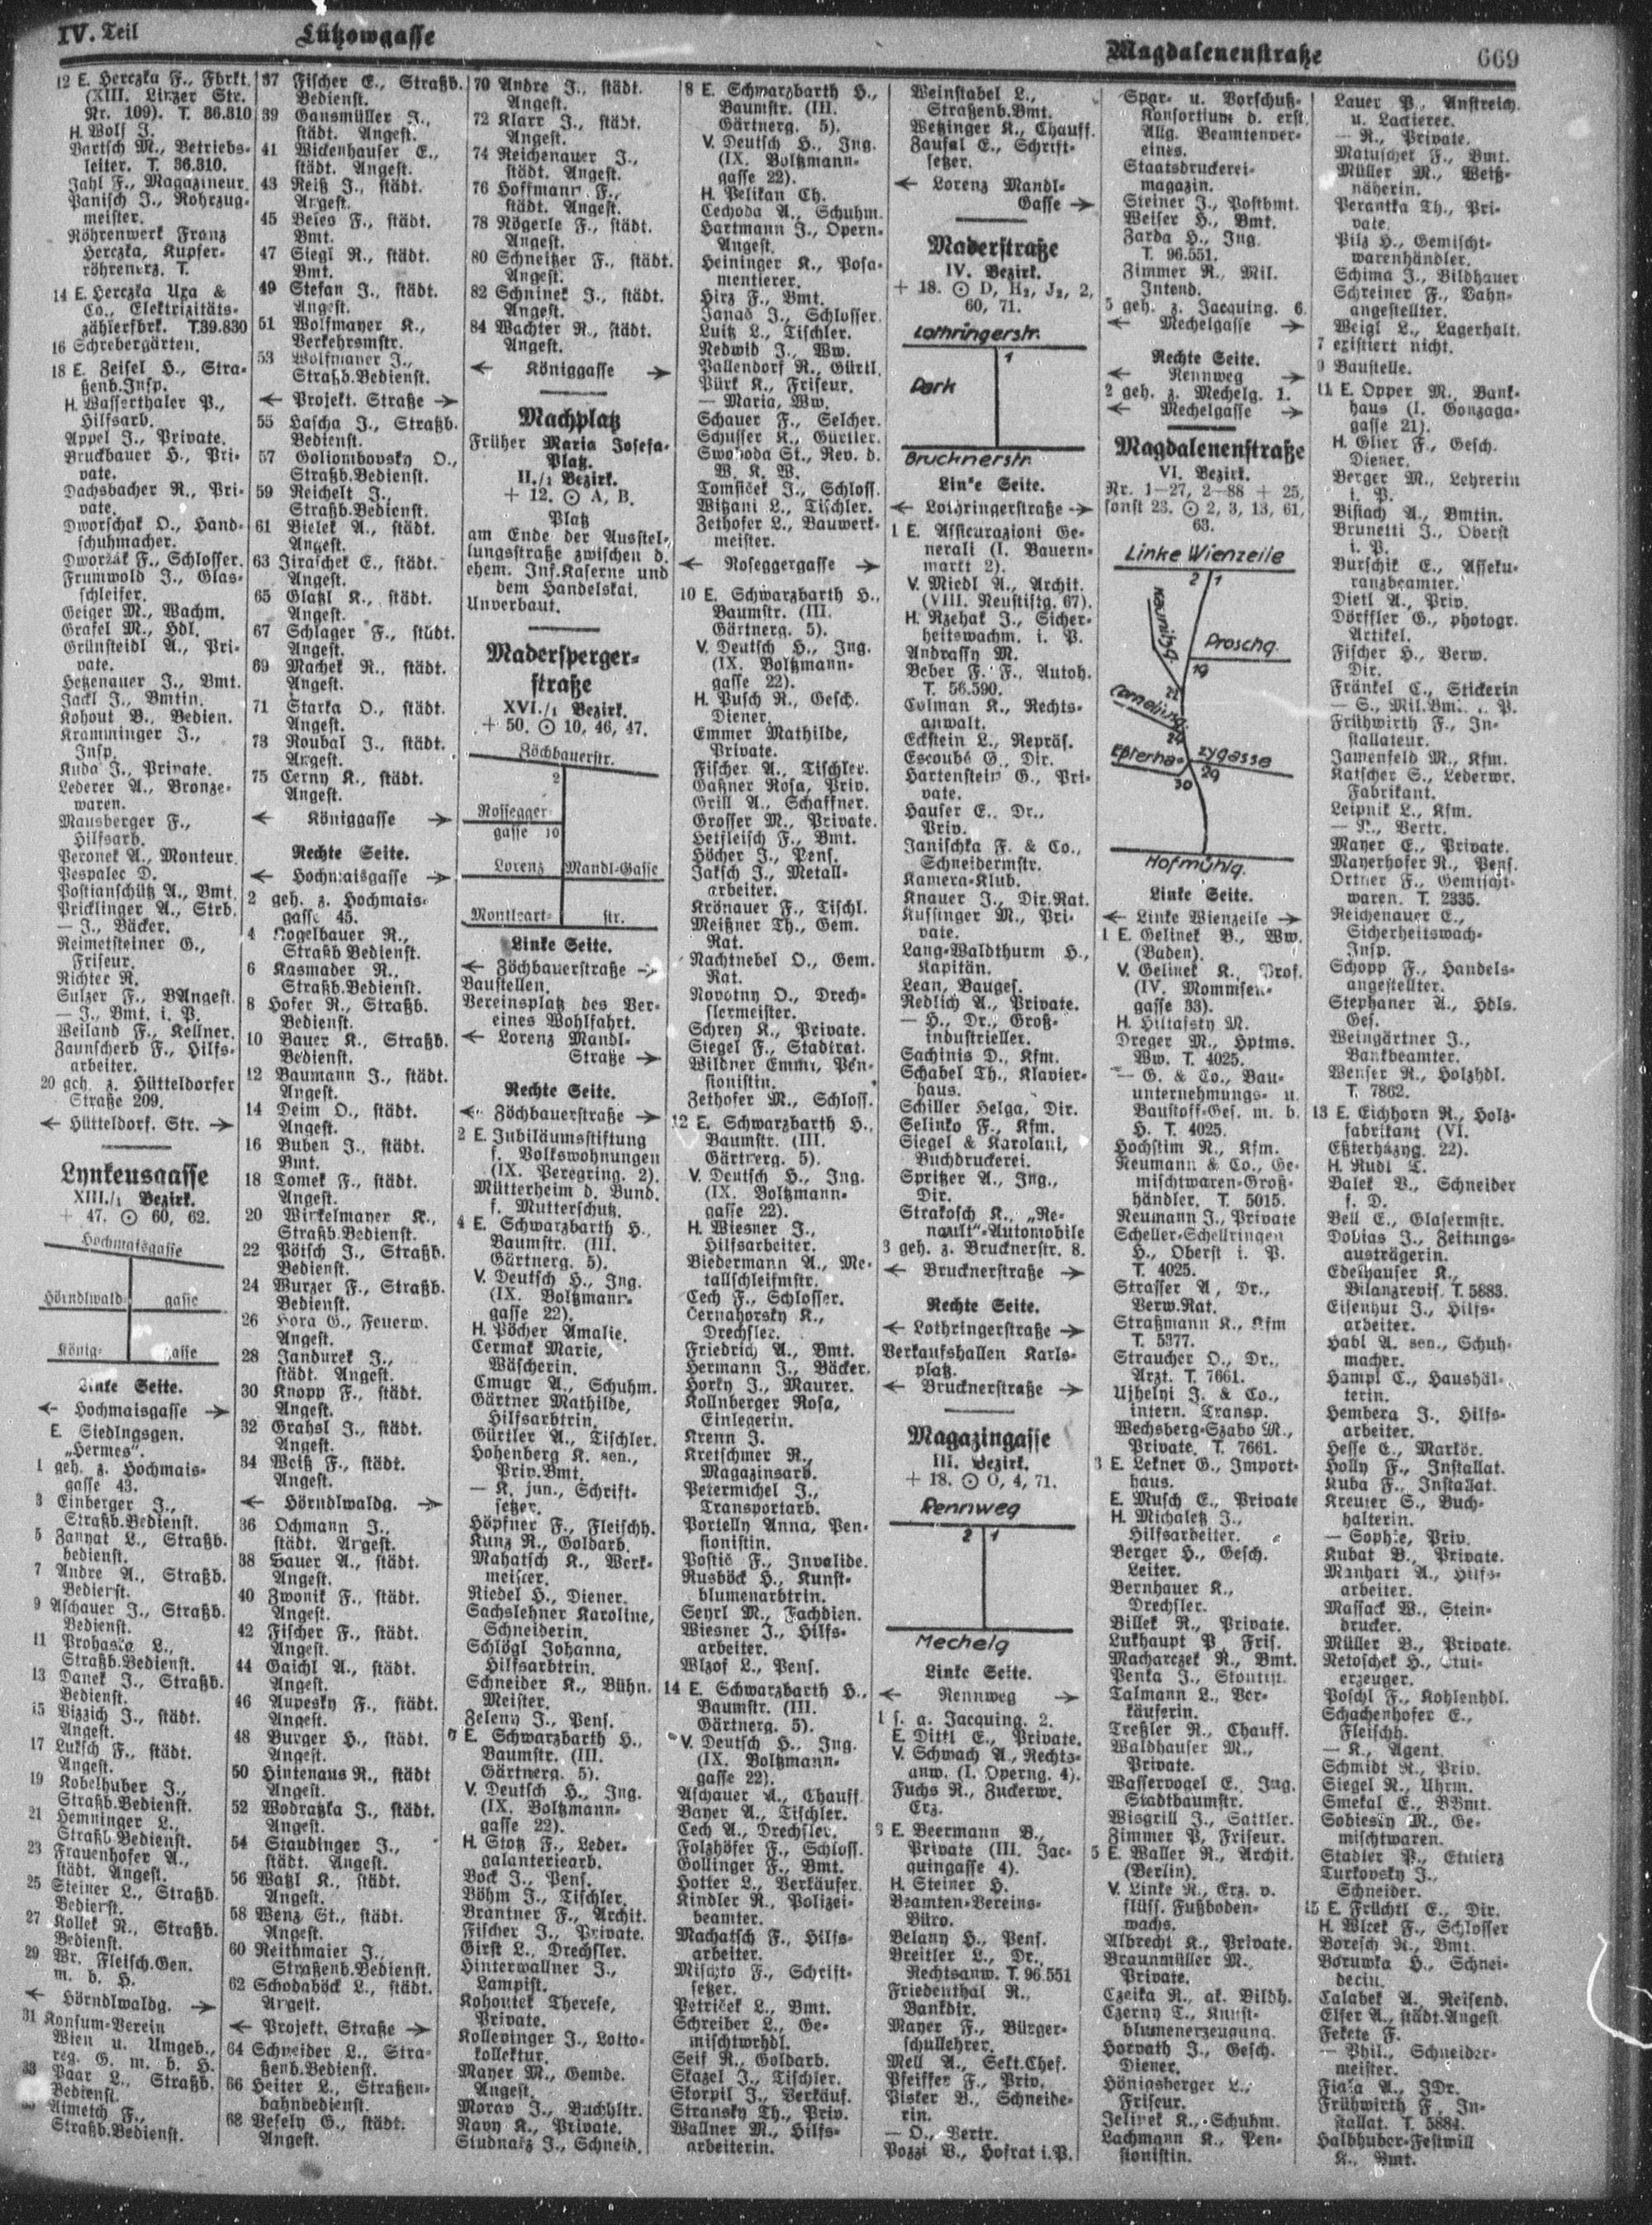 IV. Teil
Lützowgasse
Magdalenenstraße
669
12 E. Herczka F., Fbrkt.
(XIII. Linzer Str.
Nr. 109). T. 36.310
H. Wolf J.
Bartsch M., Betriebs-
leiter. T. 36.310.
Jahl F., Magazineur.
Panisch J., Rohrzug-
meister.
Röhrenwerk Franz
Herczka, Kupfer-
röhrenerz. T.
14 E. Herczka Uxa &
Co., Elektrizitäts-
zählerfbrk. T.39.830
16 Schrebergärten.
18 E. Zeisel H., Stra-
ßenb.Insp.
H. Wasserthaler P.,
Hilfsarb.
Appel J., Private.
Bruckbauer H., Pri-
vate.
Dachsbacher R., Pri-
vate.
Dworschak O., Hand-
schuhmacher.
Dworžak F., Schlosser.
Frumwold J., Glas-
schleifer.
Geiger M., Wachm.
Grafel M., Hdl.
Grünsteidl A., Pri-
vate.
Hetzenauer J., Bmt.
Jackl J., Bmtin.
Kohout B., Bedien.
Kramminger J.,
Insp.
Kuda J., Private.
Lederer A., Bronze-
waren.
Mausberger F.,
Hilfsarb.
Peronek A., Monteur.
Pespalec D.
Postianschütz A., Bmt.
Pricklinger A., Strb.
— J., Bäcker.
Reimetsteiner G.,
Friseur.
Richter R.
Sulzer F., BAngest.
— J., Bmt. i. P.
Weiland F., Kellner.
Zaunscherb F., Hilfs-
arbeiter.
20 geh. z. Hütteldorfer
Straße 209.
← Hütteldorf. Str. →
Lynkeusgasse
XIII./1 Bezirk.
+ 47. ⊙ 60, 62.
Hochmaisgasse
Hörndlwald- gasse
König- gasse
Linke Seite.
← Hochmaisgasse →
E. Siedlngsgen.
„Hermes“.
1 geh. z. Hochmais-
gasse 43.
3 Einberger J.,
Straßb.Bedienst.
5 Zannat L., Straßb.
bedienst.
7 Andre A., Straßb.
Bedienst.
9 Aschauer J., Straßb.
Bedienst.
11 Prohaska L.,
Straßb.Bedienst.
13 Danek J., Straßb.
Bedienst.
15 Vizzich J., städt.
Angest.
17 Luksch F., städt.
Angest.
19 Kobelhuber J.,
Straßb.Bedienst.
21 Hemninger L.,
Straßb.Bedienst.
23 Frauenhofer A.,
städt. Angest.
25 Steiner L., Straßb.
Bedienst.
27 Kollek R., Straßb.
Bedienst.
29 Wr. Fleisch.Gen.
m. b. H.
← Hörndlwaldg. →
31 Konsum-Verein
Wien u. Umgeb.,
reg. G. m. b. H.
33 Paar L., Straßb.
Bedienst.
Aimeth F.,
Straßb.Bedienst.
37 Fischer E., Straßb.
Bedienst.
39 Gansmüller J.,
städt. Angest.
41 Wickenhauser E.,
städt. Angest.
43 Reiß J., städt.
Angest.
45 Beies F., städt.
Bmt.
47 Siegl R., städt.
Bmt.
49 Stefan J., städt.
Angest.
51 Wolfmayer K.,
Verkehrsmstr.
53 Wolfmayer J.,
Straßb.Bedienst.
← Projekt. Straße →
55 Hascha J., Straßb.
Bedienst.
57 Goliombovsky O.,
Straßb.Bedienst.
59 Reichelt J.,
Straßb.Bedienst.
61 Bielek A., städt.
Angest.
63 Jiraschek E., städt.
Angest.
65 Glaßl K., städt.
Angest.
67 Schlager F., städt.
Angest.
69 Machek R., städt.
Angest.
71 Starka O., städt.
Angest.
73 Roubal J., städt.
Angest.
75 Cerny K., städt.
Angest.
← Königgasse →
Rechte Seite.
← Hochmaisgasse →
2 geh. z. Hochmais-
gasse 45.
4 Kogelbauer R.,
Straßb Bedienst.
6 Kasmader R.,
Straßb.Bedienst.
8 Hofer R., Straßb.
Bedienst.
10 Bauer K., Straßb.
Bedienst.
12 Baumann J., städt.
Angest.
14 Deim O., städt.
Angest.
16 Buben J., städt.
Bmt.
18 Tomek F., städt.
Angest.
20 Winkelmayer K.,
Straßb.Bedienst.
22 Pötsch J., Straßb.
Bedienst.
24 Wurzer F., Straßb.
Bedienst.
26 Hora G., Feuerw.
Angest.
28 Jandurek J.,
städt. Angest.
30 Knopp F., städt.
Angest.
32 Grahsl J., städt.
Angest.
34 Weiß F., städt.
Angest.
← Hörndlwaldg. →
36 Ochmann J.,
städt. Angest.
38 Hauer A., städt.
Angest.
40 Zwonik F., städt.
Angest.
42 Fischer F., städt.
Angest.
44 Gaichl A., städt.
Angest.
46 Aupesky F., städt.
Angest.
48 Burger H., städt.
Angest.
50 Hintenaus R., städt
Angest.
52 Wodratzka J., städt.
Angest.
54 Staudinger J.,
städt. Angest.
56 Watzl K., städt.
Angest.
58 Wenz St., städt.
Angest.
60 Reithmaier J.,
Straßenb.Bedienst.
62 Schodaböck L., städt.
Angest.
← Projekt. Straße →
64 Schneider L., Stra-
ßenb.Bedienst.
66 Heiter L., Straßen-
bahnbedienst.
68 Vesely G., städt.
Angest.
70 Andre J., städt.
Angest.
72 Klarr J., städt.
Angest.
74 Reichenauer J.,
städt. Angest.
76 Hoffmann F.,
städt. Angest.
78 Rögerle F., städt.
Angest.
80 Schneitzer F., städt.
Angest.
82 Schninek J., städt.
Angest.
84 Wachter R., städt.
Angest.
← Königgasse →
Machplatz
Früher Maria Josefa-
Platz.
II./1 Bezirk.
+ 12. ⊙ A, B.
Platz
am Ende der Ausstel-
lungsstraße zwischen d.
ehem. Inf.Kaserne und
dem Handelskai.
Unverbaut.
Madersperger-
straße
XVI./1 Bezirk.
+ 50. ⊙ 10, 46, 47.
Zöchbauerstr.
2
Rossegger-
gasse 10
Lorenz Mandl-Gasse
Montleart- str.
Linke Seite.
← Zöchbauerstraße →
Baustellen.
Vereinsplatz des Ver-
eines Wohlfahrt.
← Lorenz Mandl-
Straße →
Rechte Seite.
← Zöchbauerstraße →
2 E. Jubiläumsstiftung
f. Volkswohnungen
(IX. Peregring. 2).
Mütterheim d. Bund.
f. Mutterschutz.
4 E. Schwarzbarth H.,
Baumstr. (III.
Gärtnerg. 5).
V. Deutsch H., Ing.
(IX. Boltzmann-
gasse 22).
H. Pöcher Amalie.
Cermak Marie,
Wäscherin.
Cmugr A., Schuhm.
Gärtner Mathilde,
Hilfsarbtrin.
Gürtler A., Tischler.
Hohenberg K. sen.,
Priv.Bmt.
— K. jun., Schrift-
setzer.
Höpfner F., Fleischh.
Kunz R., Goldarb.
Mahatsch K., Werk-
meister.
Riedel H., Diener.
Sachslehner Karoline,
Schneiderin.
Schlögl Johanna,
Hilfsarbtrin.
Schneider K., Bühn.
Meister.
Zeleny J., Pens.
E. Schwarzbarth H.,
Baumstr. (III.
Gärtnerg. 5).
V. Deutsch H., Ing.
(IX. Boltzmann-
gasse 22).
H. Stotz F., Leder-
galanteriearb.
Bock J., Pens.
Böhm J., Tischler.
Brantner F., Archit.
Fischer J., Private.
Girst L., Drechsler.
Hinterwallner J.,
Lampist.
Kohoutek Therese,
Private.
Kollevinger J., Lotto-
kollektur.
Mayer M., Gemde.
Angest.
Morav J., Buchhltr.
Navy K., Private.
Studnarz J., Schneid.
8 E. Schwarzbarth H.,
Baumstr. (III.
Gärtnerg. 5).
V. Deutsch H., Ing.
(IX. Boltzmann-
gasse 22).
H. Pelikan Ch.
Cechoda A., Schuhm.
Hartmann J., Opern-
Angest.
Heininger K., Posa-
mentierer.
Hirz F., Bmt.
Janas J., Schlosser.
Luitz L., Tischler.
Nedwid J., Ww.
Pallendorf R., Gürtl.
Pürk K., Friseur.
— Maria, Ww.
Schauer F., Selcher.
Schusser K., Gürtler.
Swoboda St., Rev. d.
W. K. W.
Tomsiček J., Schloss.
Witzani L., Tischler.
Zethofer L., Bauwerk-
meister.
← Roseggergasse →
10 E. Schwarzbarth H.,
Baumstr. (III.
Gärtnerg. 5).
V. Deutsch H., Ing.
(IX. Boltzmann-
gasse 22).
H. Pusch R., Gesch.
Diener.
Emmer Mathilde,
Private.
Fischer A., Tischler.
Gaßner Rosa, Priv.
Grill A., Schaffner.
Grosser M., Private.
Hetfleisch F., Bmt.
Höcher J., Pens.
Jaksch J., Metall-
arbeiter.
Krönauer F., Tischl.
Meißner Th., Gem.
Rat.
Nachtnebel O., Gem.
Rat.
Novotny O., Drech-
slermeister.
Schrey K., Private.
Siegel F., Stadtrat.
Wildner Emmi, Pen-
sionistin.
Zethofer M., Schloss.
12 E. Schwarzbarth H.,
Baumstr. (III.
Gärtnerg. 5).
V. Deutsch H., Ing.
(IX. Boltzmann-
gasse 22).
H. Wiesner J.,
Hilfsarbeiter.
Biedermann A., Me-
tallschleifmstr.
Cech F., Schlosser.
Cernahorsky K.,
Drechsler.
Friedrich A., Bmt.
Hermann J., Bäcker.
Horky J., Maurer.
Kollnberger Rosa,
Einlegerin.
Krenn J.
Kretschmer R.,
Magazinsarb.
Petermichel J.,
Transportarb.
Portelly Anna, Pen-
sionistin.
Postič F., Invalide.
Rusböck H., Kunst-
blumenarbtrin.
Seyrl M., Fachdien.
Wiesner J., Hilfs-
arbeiter.
Wlzof L., Pens.
14 E. Schwarzbarth H.,
Baumstr. (III.
Gärtnerg. 5).
V. Deutsch H., Ing.
(IX. Boltzmann-
gasse 22).
Aschauer A., Chauff
Bayer A., Tischler.
Cech A., Drechsler.
Folzhöfer F., Schloss.
Gollinger F., Bmt.
Hotter L., Verkäufer.
Kindler R., Polizei-
beamter.
Machatsch F., Hilfs-
arbeiter.
Mischto F., Schrift-
setzer.
Petriček L., Bmt.
Schreiber L., Ge-
mischtwrhdl.
Seif R., Goldarb.
Skazel J., Tischler.
Skorpil J., Verkäuf.
Stransky Th., Priv.
Wallner M., Hilfs-
arbeiterin.
Weinstabel L.,
Straßenb.Bmt.
Wetzinger K., Chauff.
Zausal E., Schrift-
setzer.
← Lorenz Mandl-
Gasse →
Maderstraße
IV. Bezirk.
+ 18. ⊙ D, H₂, J₂, 2,
60, 71.
Lothringerstr.
1
Park
Brucknerstr.
Linke Seite.
← Lothringerstraße →
1 E. Assicurazioni Ge-
nerali (I. Bauern-
markt 2).
V. Miedl A., Archit.
(VIII. Neustiftg. 67).
H. Rzehak J., Sicher-
heitswachm. i. P.
Andrassy M.
Beber F. F., Autoh.
T. 56.590.
Colman K., Rechts-
anwalt.
Eckstein L., Repräs.
Escoubé G., Dir.
Hartenstein G., Pri-
vate.
Hauser E., Dr.,
Priv.
Janischka F. & Co.,
Schneidermstr.
Kamera-Klub.
Knauer J., Dir.Rat.
Kussinger M., Pri-
vate.
Lang-Waldthurm H.,
Kapitän.
Lean, Bauges.
Redlich A., Private.
— H., Dr., Groß-
industrieller.
Sachinis D., Kfm.
Schabel Th., Klavier-
haus.
Schiller Helga, Dir.
Selinko F., Kfm.
Siegel & Karolani,
Buchdruckerei.
Spritzer A., Ing.,
Dir.
Strakosch K., „Re-
nault“-Automobile
3 geh. z. Brucknerstr. 8.
← Brucknerstraße →
Rechte Seite.
← Lothringerstraße →
Verkaufshallen Karls-
platz.
← Brucknerstraße →
Magazingasse
III. Bezirk.
+ 18. ⊙ O, 4, 71.
Rennweg
2 1
Mechelg
Linke Seite.
← Rennweg →
1 s. a. Jacquing. 2.
E. Dittl E., Private.
V. Schwach A., Rechts-
anw. (I. Operng. 4).
Fuchs R., Zuckerwr.
Erz.
3 E. Beermann B.,
Private (III. Jac-
quingasse 4).
H. Steiner H.
Beamten-Vereins-
Büro.
Belany H., Pens.
Breitler L., Dr.,
Rechtsanw. T. 96.551
Friedenthal R.,
Bankdir.
Mayer F., Bürger-
schullehrer.
Mell A., Sekt.Chef.
Pfeiffer F., Priv.
Pisker B., Schneide-
rin.
— O., Vertr.
Pozzi B., Hofrat i.P.
Spar- u. Vorschuß-
Konsortium d. erst.
Allg. Beamtenver-
eines.
Staatsdruckerei-
magazin.
Steiner J., Postbmt.
Weiser H., Bmt.
Zarda H., Ing.
T. 96.551.
Zimmer R., Mil.
Intend.
5 geh. z. Jacquing. 6.
← Mechelgasse →
Rechte Seite.
← Rennweg →
2 geh. z. Mechelg. 1.
← Mechelgasse →
Magdalenenstraße
VI. Bezirk.
Nr. 1—27, 2—88 + 25,
sonst 23. ⊙ 2, 3, 13, 61,
63.
Linke Wienzeile
2 1
Kaunitzg.
Proschg.
19
Corneliusg.
24
Eßterha- zygasse
29
30
Hofmühlg.
Linke Seite.
← Linke Wienzeile →
1 E. Gelinek B., Ww.
(Baden).
V. Gelinek K., Prof.
(IV. Mommsen-
gasse 33).
H. Hiltafsky M.
Dreger M., Hptms.
Ww. T. 4025.
— G. & Co., Bau-
unternehmungs- u.
Baustoff-Ges. m. b.
H. T. 4025.
Hochstim R., Kfm.
Neumann & Co., Ge-
mischtwaren-Groß-
händler. T. 5015.
Neumann J., Private
Scheller-Schellringen
H., Oberst i. P.
T. 4025.
Strasser A., Dr.,
Verw.Rat.
Straßmann K., Kfm
T. 5377.
Straucher O., Dr.,
Arzt. T. 7661.
Ujhelyi J. & Co.,
intern. Transp.
Wechsberg-Szabo M.,
Private. T. 7661.
3 E. Lekner G., Import-
haus.
E. Musch E., Private
H. Michaletz J.,
Hilfsarbeiter.
Berger H., Gesch.
Leiter.
Bernhauer K.,
Drechsler.
Billek R., Private.
Lukhaupt P., Fris.
Macharczek R., Bmt.
Penka J., Stoutist.
Talmann L., Ver-
käuferin.
Treßler R., Chauff.
Waldhauser M.,
Private.
Wasservogel E., Ing.
Stadtbaumstr.
Wisgrill J., Sattler.
Zimmer P., Friseur.
5 E. Waller R., Archit.
(Berlin).
V. Linke R., Erz. v.
flüss. Fußboden-
wachs.
Albrecht K., Private.
Braunmüller M.,
Private.
Czeika R., ak. Bildh.
Czerny T., Kunst-
blumenerzeugung.
Horvath J., Gesch.
Diener.
Hönigsberger L.,
Friseur.
Jelinek K., Schuhm.
Lachmann K., Pen-
sionistin.
Lauer P., Anstreich.
u. Lackierer.
— R., Private.
Matuschek F., Bmt.
Müller M., Weiß-
näherin.
Perantka Th., Pri-
vate.
Pilz H., Gemischt-
warenhändler.
Schima J., Bildhauer
Schreiner F., Bahn-
angestellter.
Weigl L., Lagerhalt.
7 existiert nicht.
9 Baustelle.
11 E. Opper M., Bank-
haus (I. Gonzaga-
gasse 21).
H. Glier F., Gesch.
Diener.
Berger M., Lehrerin
i. P.
Bisiach A., Bmtin.
Brunetti J., Oberst
i. P.
Burschik E., Asseku-
ranzbeamter.
Dietl A., Priv.
Dörffler G., photogr.
Artikel.
Fischer H., Verw.
Dir.
Fränkel C., Stickerin
— S., Mil.Bmt. i. P.
Frühwirth F., In-
stallateur.
Jamenfeld M., Kfm.
Katscher S., Lederwr.
Fabrikant.
Leipnik L., Kfm.
Vertr.
Mayer E., Private.
Mayerhofer R., Pens.
Ortner F., Gemischt-
waren. T. 2335.
Reichenauer E.,
Sicherheitswach-
Insp.
Schopp F., Handels-
angestellter.
Stephaner A., Hdls.
Ges.
Weingärtner J.,
Bankbeamter.
Wenser R., Holzhdl.
T. 7862.
13 E. Eichhorn R., Holz-
fabrikant (VI.
Eßterházyg. 22).
H. Rudl T.
Balek V., Schneider
f. D.
Bell E., Glasermstr.
Dobias J., Zeitungs-
austrägerin.
Edelhauser K.,
Bilanzrevis. T. 5883.
Eisenhut J., Hilfs-
arbeiter.
Habl A. sen., Schuh-
macher.
Hampl C., Haushäl-
terin.
Hembera J., Hilfs-
arbeiter.
Hesse E., Markör.
Holly F., Installat.
Kuba F., Installat.
Kreuzer S., Buch-
halterin.
— Sophie, Priv.
Kubat B., Private.
Manhart A., Hilfs-
arbeiter.
Massack W., Stein-
drucker.
Müller B., Private.
Netoschek H., Etui-
erzeuger.
Poschl F., Kohlenhdl.
Schachenhofer E.,
Fleischh.
— K., Agent.
Schmidt R., Priv.
Siegel R., Uhrm.
Smekal E., BBmt.
Sobiesky M., Ge-
mischtwaren.
Stadler P., Etuierz
Turkovsky J.,
Schneider.
15 E. Früchtl E., Dir.
H. Wlcek F., Schlosser
Boresch R., Bmt.
Boruwka H., Schnei-
derin.
Calabek A. Reisend.
Elser A., städt.Angest
Fekete F.
— Phil., Schneider-
meister.
Fiala A., JDr.
Frühwirth F., In-
stallat. T. 5884.
Halbhuber-Festwill
K., Bmt.